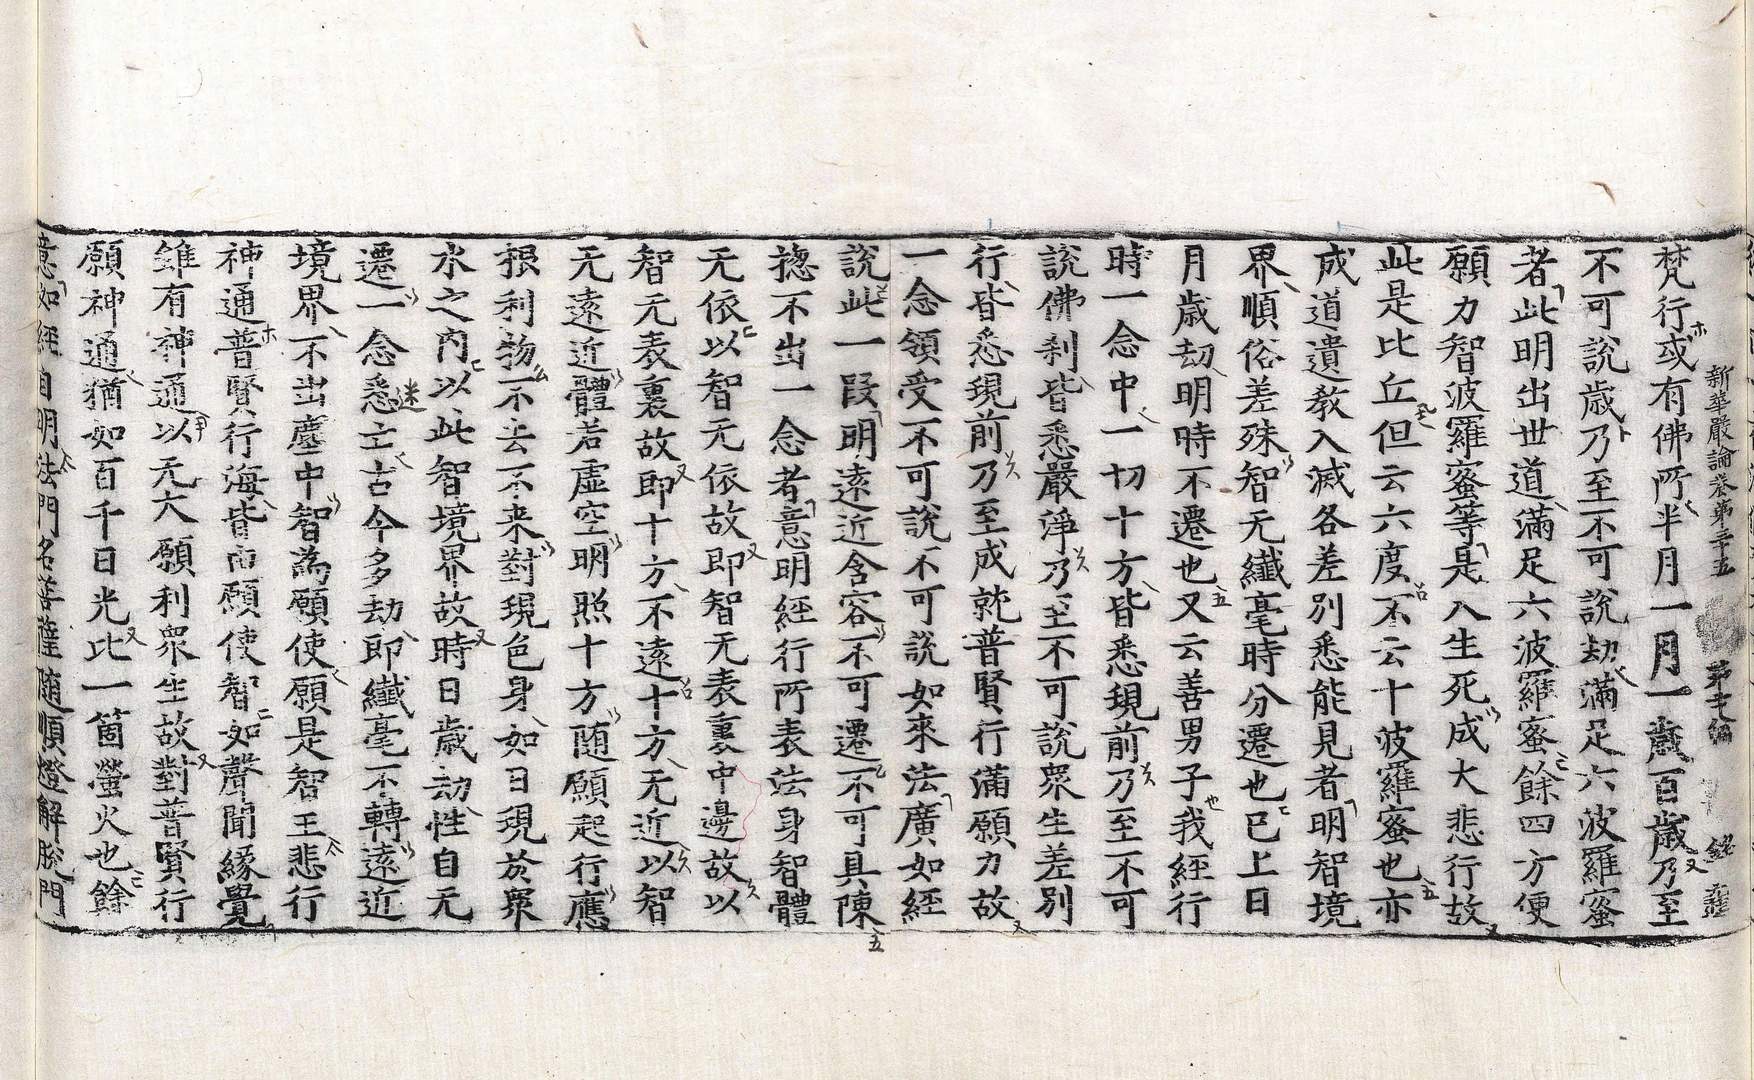 新華嚴論卷第三十五
梵行或有佛所半月一月一歲百歲乃至
不可說歲乃至不可說劫滿足六波羅蜜
者此明出世道滿足六波羅蜜餘四方便
願力智波羅蜜等是入生死成大悲行故
此是比丘但云六度不云十波羅蜜也亦
成道遺教入滅各差別悉能見者明智境
界順俗差殊智无纖毫時分遷也已上日
月歲劫明時不遷也又云善男子我經行
時一念中一切十方皆悉現前乃至不可
說佛剎皆悉嚴淨乃至不可說眾生差別
行皆悉現前乃至成就普賢行滿願力故
一念領受不可說不可說如來法廣如經
說此一段明遠近含容不可遷不可具陳
揔不出一念者意明經行所表法身智體
无依以智无依故即智无表裏中邊故以
智无表裏故即十方不遠十方无近以智
无遠近體若虛空明照十方随願起行應
根利物不去不来對現色身如日現於衆
水之內以此智境界故時日歲劫性自无
遷一念悉亡古今多劫即纖毫不轉遠近
境界不出塵中智為願使願是智王悲行
神通普賢行海皆而願使智如聲聞緣覺
雖有神通以无大願利衆生故對普賢行
願神通猶如百千日光比一箇螢火也餘
意如經自明法門名菩薩随順燈解脫門